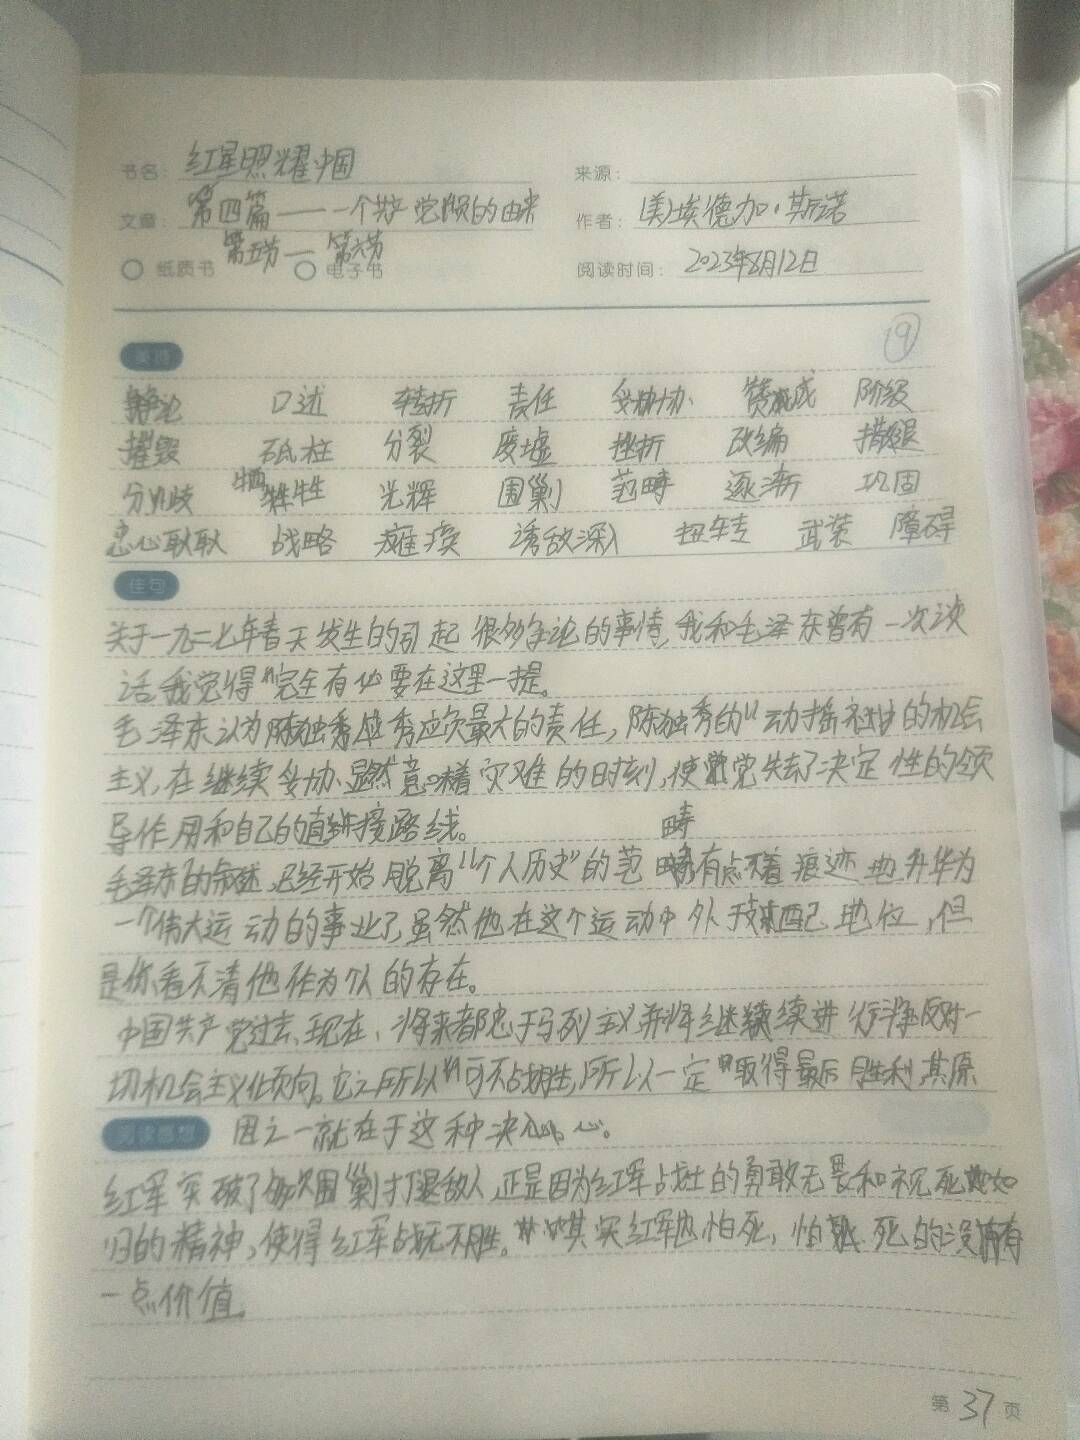 书名： 红星照耀中国 来源：
文章： 第四篇——一个共产党员的由来 作者： (美)埃德加·斯诺
第五节——第六节
纸质书 电子书 阅读时间： 2023年8月12日
19
美词
争论 口述 转折 责任 妥协 赞成 阶级
摧毁 砥柱 分裂 废墟 挫折 改编 撤退
分歧 牺牲 光辉 围剿 范畴 逐渐 巩固
忠心耿耿 战略 瘫痪 诱敌深入 扭转 武装 障碍
佳句
关于一九二七年春天发生的引起很多争论的事情,我和毛泽东曾有一次谈
话我觉得完全有必要在这里一提。
毛泽东认为陈独秀应负最大的责任,陈独秀的"动摇不定的机会
主义,在继续妥协、显然意味着灾难的时刻,使党失去了决定性的领
导作用和自己的直接路线。
畴
毛泽东的叙述,已经开始脱离"个人历史"的范 有点不着痕迹地升华为
一个伟大运动的事业了,虽然他在这个运动中处于支配地位,但
是你看不清他作为个人的存在。
中国共产党过去、现在、将来都忠于马列主义,并将继续进行斗争反对一
切机会主义倾向。它之所以不可战胜,所以一定取得最后胜利,其原
阅读感想 因之一就在于这种决心。
红军突破了每次围剿打退敌人,正是因为红军战士的勇敢无畏和视死如
归的精神,使得红军战无不胜。其实红军也怕死,怕死的没有
一点价值
第37页